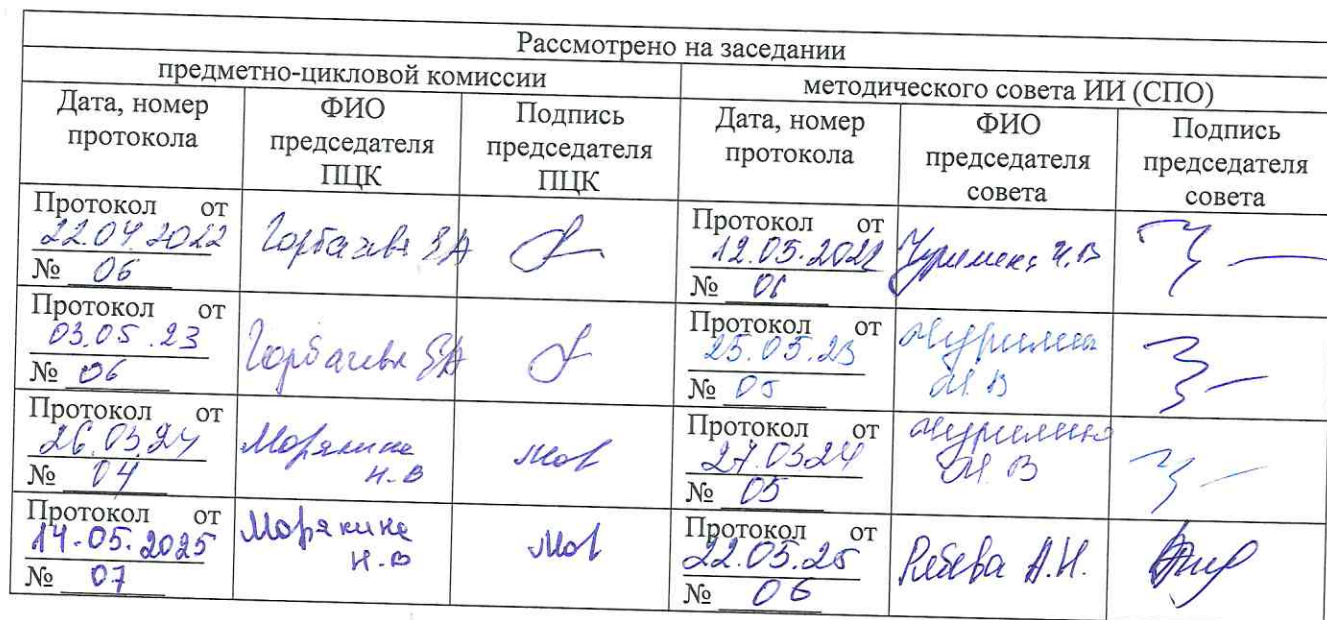 Рассмотрено на заседании
предметно-цикловой комиссии
методического совета ИИ (СПО)
Дата, номер протокола
ФИО председателя ПЦК
Подпись председателя ПЦК
Дата, номер протокола
ФИО председателя совета
Подпись председателя совета
Протокол от
22.04.2022
№ 06
Горбачева
Протокол от
12.05.2022
№ 06
Протокол от
03.05.23
№ 06
Горбачева
Протокол от
25.05.23
№ 05
Протокол от
26.03.24
№ 04
Морякина
Н.В
Протокол от
27.03.24
№ 05
Протокол от
14.05.2025
№ 07
Морякина
Н.В
Протокол от
22.05.25
№ 06
А.Н.